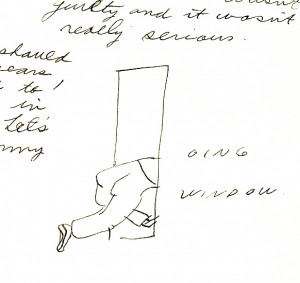 guilty and it wasn't
really serious.
shaved
ears
to!
in
Let's
OING
WINDOW.